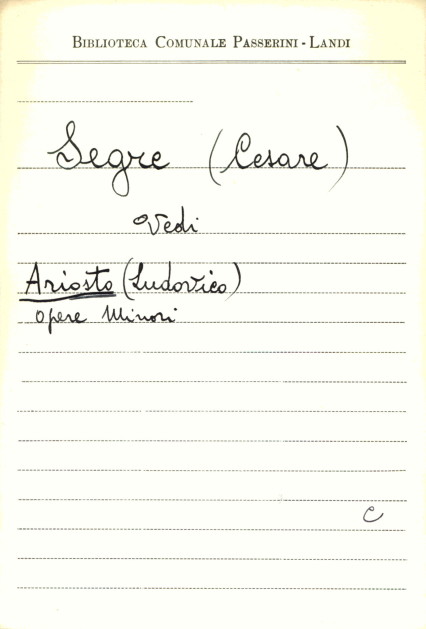 Biblioteca Comunale Passerini - Landi
Segre (Cesare)
Vedi
Ariosto (Ludovico)
Opere Minori
C